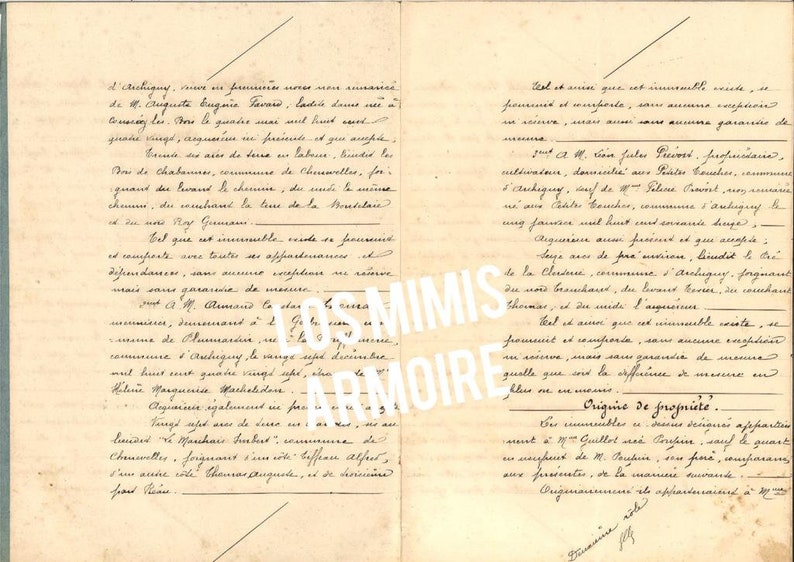 d'Archigny, veuve en premières noces non remariée
de M. Auguste Eugène Favard; Ladite dame née à
les Bois le quatre mai mil huit cent
quatre vingt, acquéreur ici présente et que accepte;
Trente six ares de terre en labour, lieudit les
Bois de Chabannes, commune de Chenevelles, joi-
gnant du levant le chemin, du midi le même
chemin, du couchant la terre de la
et du nord Roy Germain.
Tel que cet immeuble existe se poursuit
et comporte avec toutes ses appartenances et
dépendances, sans aucune exception ni réserve
mais sans garantie de mesure.
2ent A M. Armand Constant Thomas
menuisier, demeurant à
de Pleumartin, né à
commune d'Archigny, le vingt sept décembre
mil huit cent quatre vingt sept, époux de Me
Hélène Marguerite Macheledon.
Acquéreur également ici
Vingt sept ares de terre en
lieudit "Le Marchais Imbert", commune de
Chenevelles, joignant d'un côté Teffeau Alfred,
d'un autre côté Thomas Auguste, et de troisième
part Réau.
Tel et ainsi que cet immeuble existe, se
poursuit et comporte, sans aucune exception
ni réserve, mais aussi sans aucune garantie de
mesure
3ent A M. Léon Jules Prévost, propriétaire,
cultivateur, domicilié aux Petites Touches, commune
d'Archigny, veuf de Mme Félicie Prévost, non remarié
né aux Petites Touches, commune d'Archigny le
cinq janvier mil huit cent soixante treize,
Acquéreur aussi présent et que accepte;
Seize ares de pré environ, lieudit le Pré
de la commune d'Archigny, joignant
du nord Tranchant, du levant Texier, du couchant
Thomas, et du midi l'acquéreur.
Tel et ainsi que cet immeuble existe, se
poursuit et comporte, sans aucune exception
ni réserve, mais sans garantie de mesure
quelle que soit la différence de mesure en
plus ou en moins.
Origine de propriété.
Les immeubles ci-dessus désignés appartien
nent à Mme Guillot née Poupin, sauf le quart
en usufruit de M. Poupin, son père, comparant
aux présentes, de la manière suivante.
Originairement ils appartenaient à Mme
Deuxième rôle
LOS MIMIS
ARMOIRE